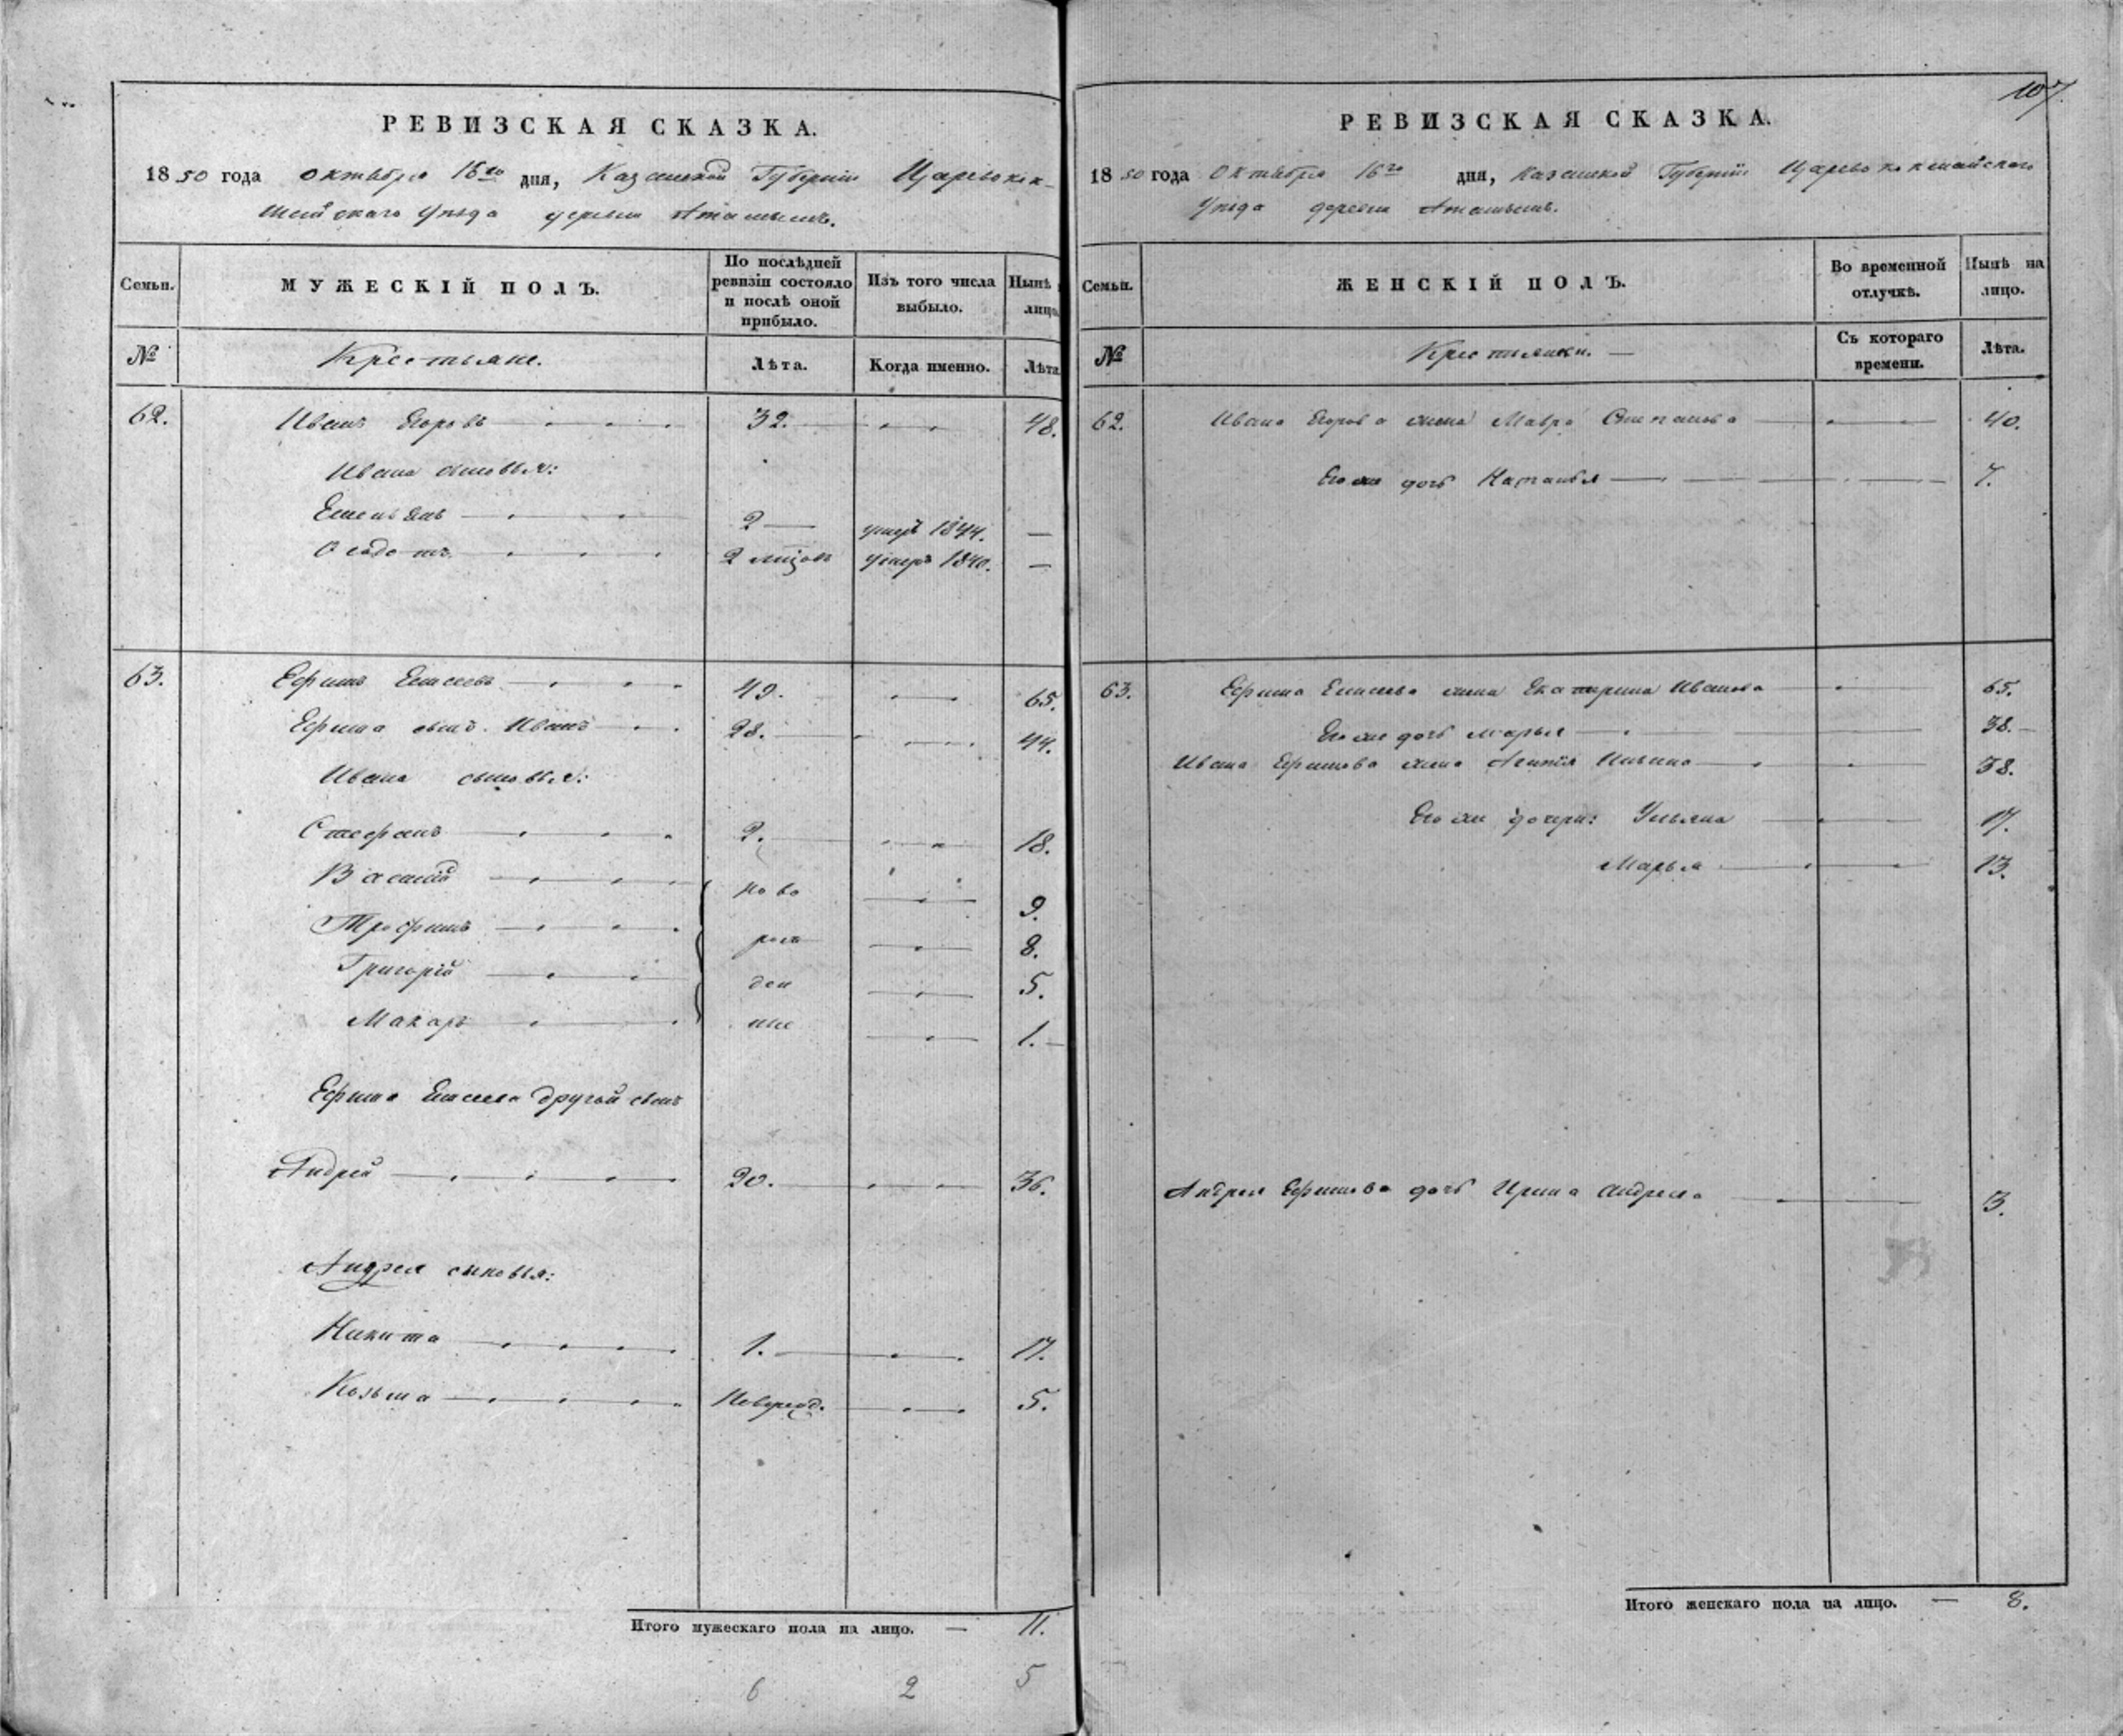 РЕВИЗСКАЯ СКАЗКА.
1850 года октября 16го дня, Казанской Губернiи Царевокок-
шайскаго Уѣзда деревни
Семьи.
МУЖЕСКІЙ ПОЛЪ.
По послѣдней ревизіи состояло и послѣ оной прибыло.
Изъ того числа выбыло.
Нынѣ лицо
№
Крестьяне.
Лѣта.
Когда именно.
Лѣта
62. Иванъ Егоровъ 32. 48.
Ивана сыновья:
Емельянъ 2 умеръ 1844. —
Федотъ 2 умеръ 1840. —
63. Ефимъ Елисеевъ 49. 65.
Ефима сынъ Иванъ 28. 44.
Ивана сыновья:
Стефанъ 2. 18.
Василій ново 9.
Трофимъ рож 8.
Григорій ден 5.
Макаръ ные 1.
Ефима Елисеева другой сынъ
Андрей 20. 36.
Андрея сыновья:
Никита 1. 17.
Козьма Новорожд. 5.
Итого мужескаго пола на лицо. — 11.
6 2 5
107.
РЕВИЗСКАЯ СКАЗКА.
1850 года Октября 16го дня, Казанской Губерніи Царевококшайскаго
Уѣзда деревни
Семьи.
ЖЕНСКІЙ ПОЛЪ.
Во временной отлучкѣ.
Нынѣ на лицо.
№
Крестьянки. —
Съ котораго времени.
Лѣта.
62. Ивана Егорова жена Мавра Степанова 40.
Его же дочь Наталья 7.
63. Ефима Елисеева жена Екатерина Иванова 65.
Его же дочь Марья 38.
Ивана Ефимова жена Ильина 38.
Его же дочери: Ульяна 17.
Марья 13.
Андрея Ефимова дочь Ирина Андреева 3.
Итого женскаго пола на лицо. — 8.